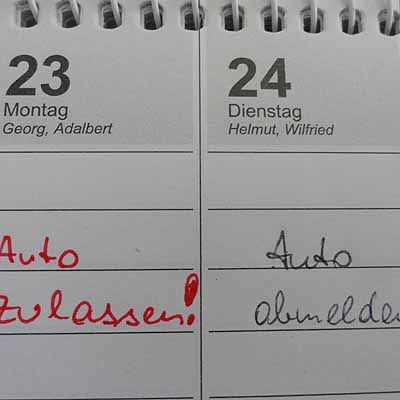 23
Montag
Georg, Adalbert
Auto
zulassen!
24
Dienstag
Helmut, Wilfried
Auto
abmelden